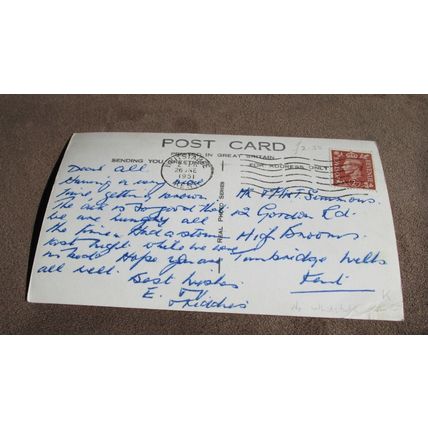 POST CARD
PRINTED IN GREAT BRITAIN
SENDING YOU GREETINGS
FOR ADDRESS ONLY
WHITSTABLE
26 JNE
1951
KENT
REAL PHOTO SERIES
Dear all
Having a very nice
time, getting brown
The air is so good that
we are hungry all
the time. Had a storm
last night while we were
in bed. Hope you are
all well.
Best wishes
E.
+ Kiddies
Mr & Mrs Simmons.
Gordon Rd.
High Brooms
Tunbridge Wells
Kent
POSTAGE
REVENUE